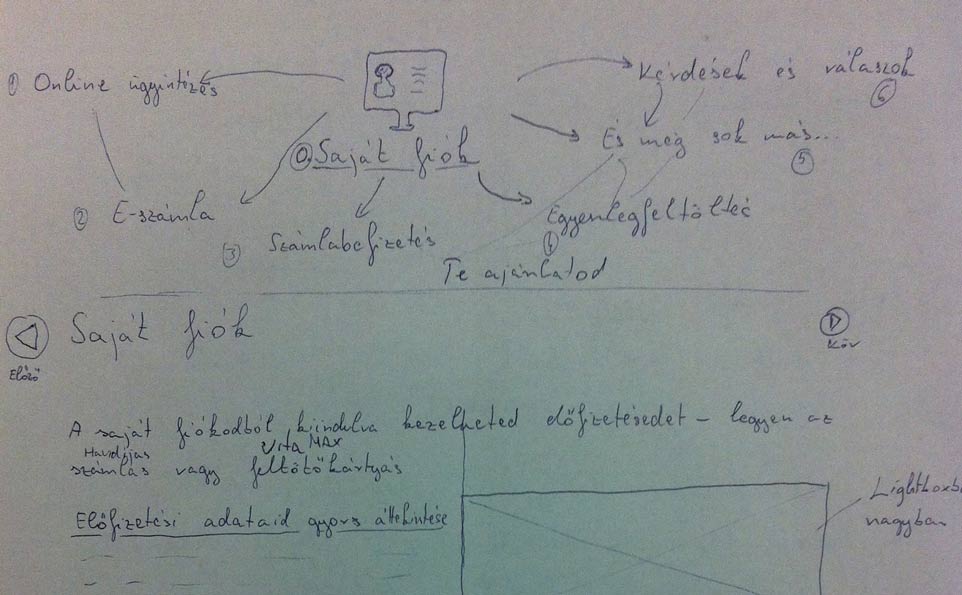 ① Online ügyintézés
Kérdések és válaszok
⑥
És még sok más...
⑤
⓪ Saját fiók
② E-számla
Egyenlegfeltöltés
④
③ Számlabefizetés
Te ajánlatod
Saját fiók
Előző
Köv
A saját fiókodból kiindulva kezelheted előfizetésedet – legyen az
Havidíjas
Vita MAX
számlás vagy feltötőkártyás
Előfizetési adataid gyors áttekintése
Lightboxba
nagyban